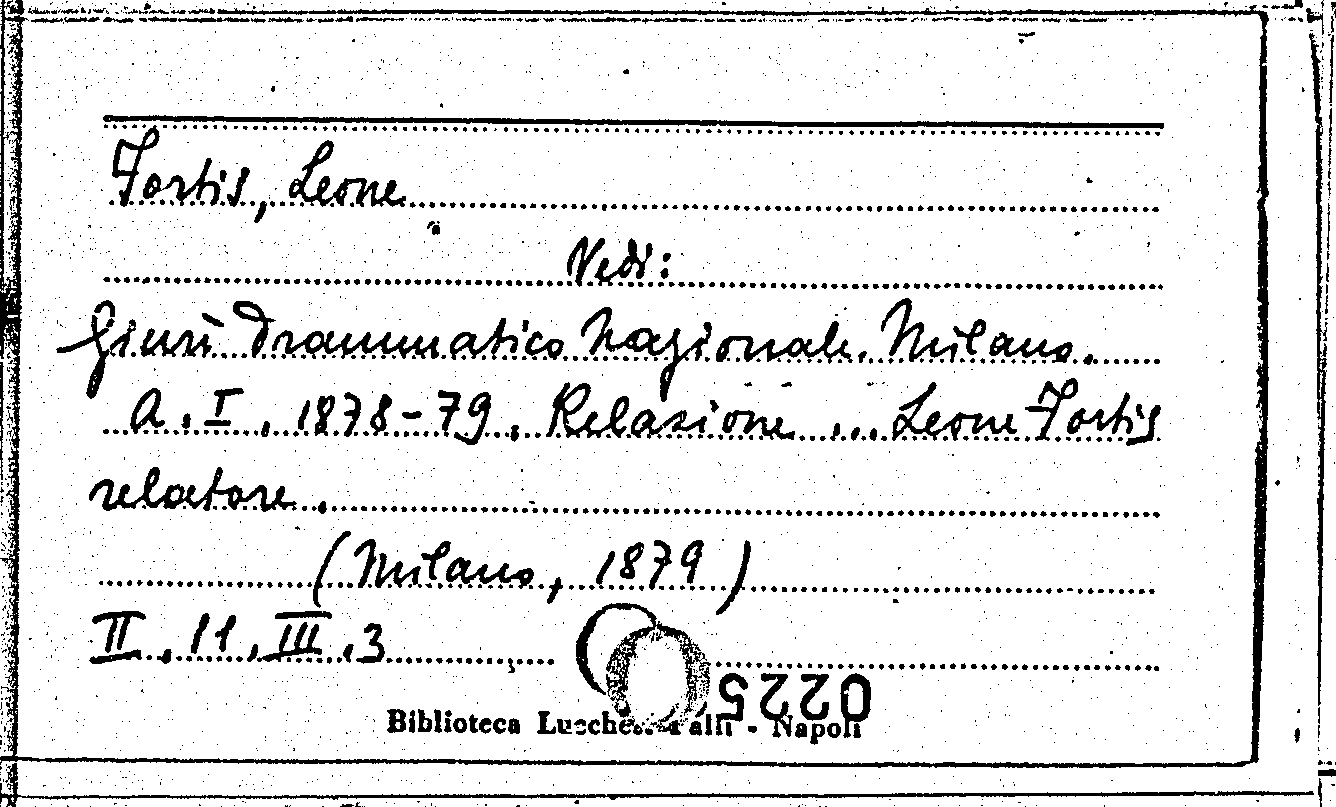 Fortis, Leone
Vedi:
Giurì Drammatico Nazionale. Milano.
A. I, 1878-79. Relazione ... Leone Fortis
relatore.
(Milano, 1879)
II. 11. III. 3
0225
Biblioteca Lucchesi Palli - Napoli